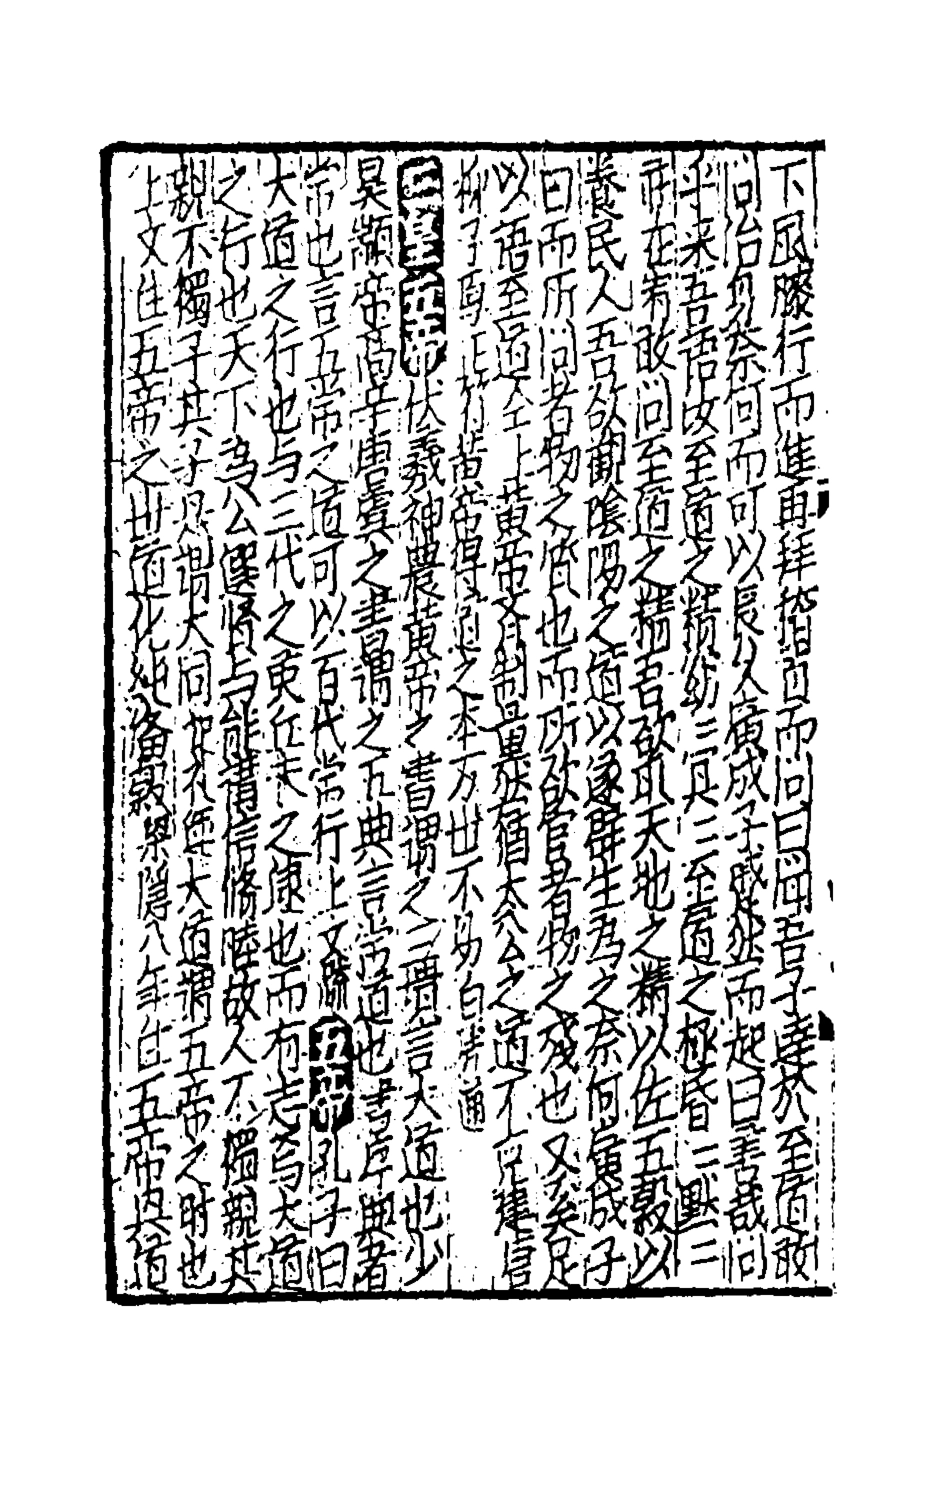 下風膝行而進再拜稽首而问曰闻吾子達於至道敢
问治身奈何而可以長久廣成子蹙然而起曰善哉问
乎来吾语汝至道之精窈〻冥〻至道之極昏〻默〻
莊在宥敢问至道之精吾欲取天地之精以佐五穀以
養民人吾欲觀陰陽之道以遂群生為之奈何廣成子
曰而所问者物之質也而所欲官者物之残也又奚足
以语至道仝上黄帝文有制量然循大公之道不建言
柳子厚正符黄帝得道之本万世不易白
三皇五帝伏羲神農黄帝之書謂之三墳言大道也少
昊顓帝高辛唐虞之書謂之五典言常道也書序典者
常也言五帝之道可以百代常行上文疏五帝孔子曰
大道之行也与三代之英丘未之逮也而有志焉大道
之行也天下為公選賢与能講信修睦故人不獨親其
親不獨子其子是謂大同礼運大道謂五帝之时也
上文注五帝之世道化純備穀梁隱八年注五帝其道